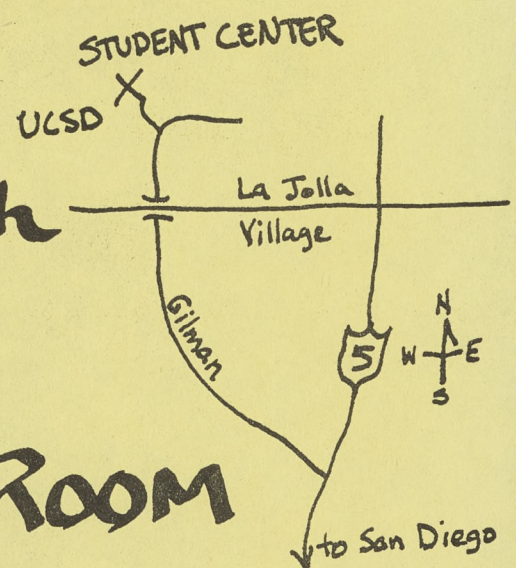 STUDENT CENTER
UCSD
La Jolla
Village
Gilman
5
N
W E
S
ROOM
to San Diego